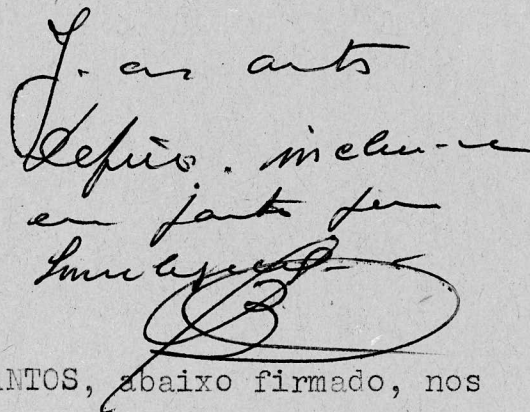 J. aos autos
Defiro. inclua-se
em pauta para
ANTOS, abaixo firmado, nos